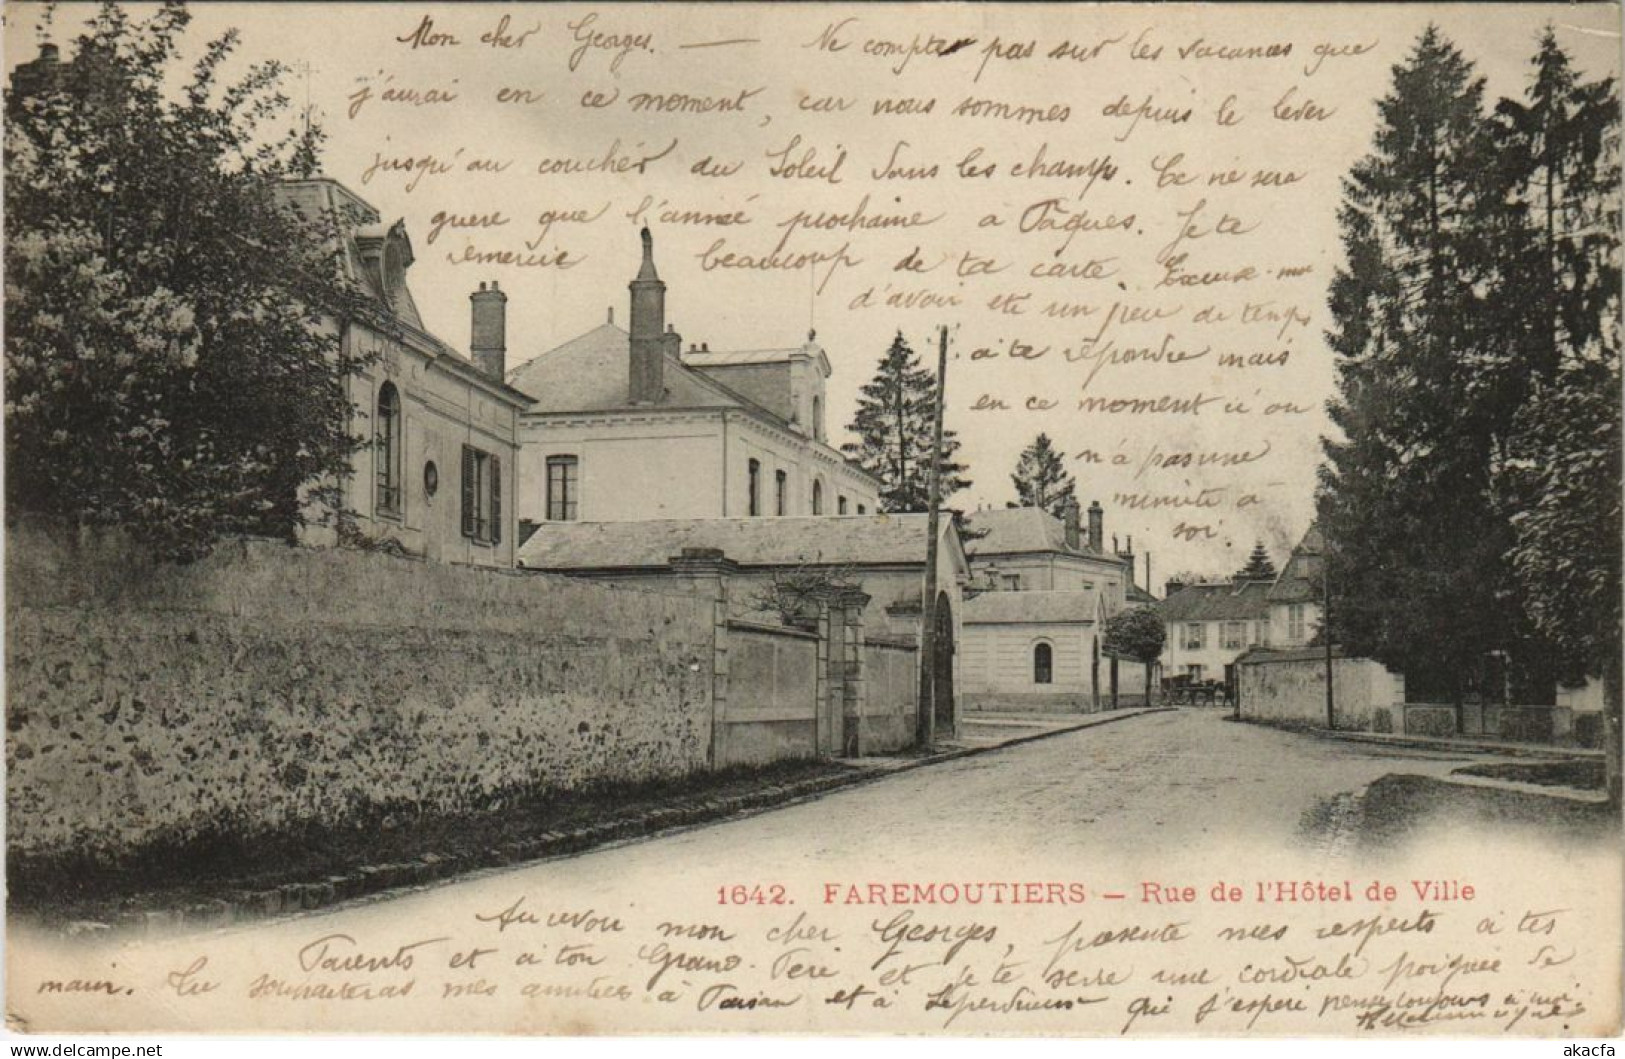 Mon cher Georges. — Ne compte pas sur les vacances que
j'aurai en ce moment, car nous sommes depuis le lever
jusqu'au coucher du Soleil dans les champs. Ce ne sera
guere que l'année prochaine à Pâques. Je te
remercie beaucoup de ta carte. Excuse-moi
d'avoir eté un peu de temps
à te répondre mais
en ce moment ci on
n'á pas une
minute à
soi.
1642. FAREMOUTIERS — Rue de l'Hôtel de Ville
Au revoir mon cher Georges, présente mes respects à tes
Parents et à ton Grand-Père et je te serre une cordiale poignée de
main. Tu souhaiteras mes amitiés à et à que j'espère pense toujours à moi.
akacfa
www.delcampe.net